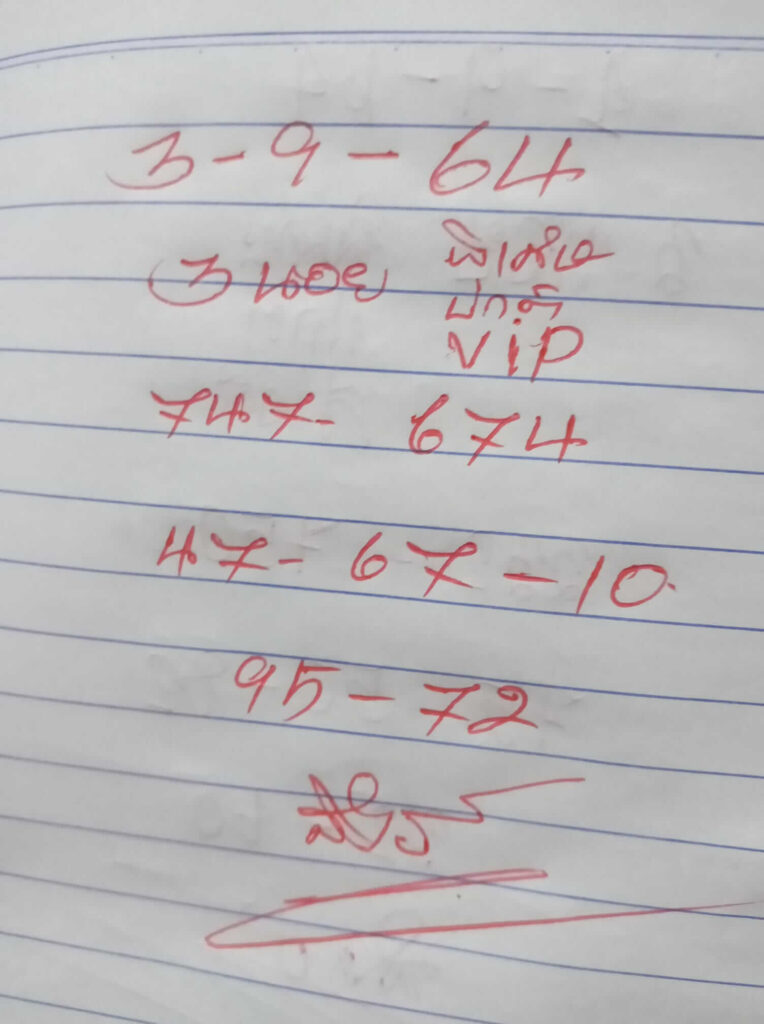 3-9-64
3 นอย พิเศษ
ปกติ
ViP
747- 674
47- 67-10
95-72